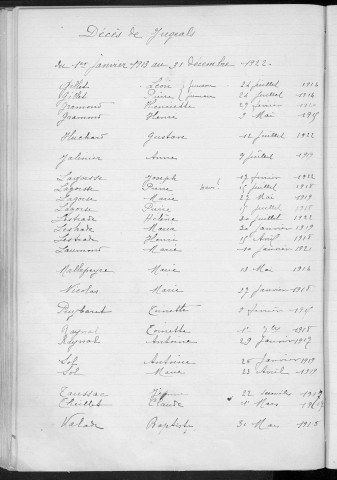 Décès de Jugeals
du 1er janvier 1913 au 31 décembre 1922.
Gillet Léon 24 juillet 1914
Gillet Pierre 24 juillet 1914
Gramond Henriette 29 janvier
Gramond Henri 9 Mai 1915
Huchard Gustave 12 juillet 1922
Jalinier Anna 9 juillet 1919
Lagorsse Joseph 17 février 1922
Lagorsse Pierre 15 juillet 1918
Lagorsse Marie 27 Mai 1919
Lagorsse Pierre 15 juillet 1918
Lestrade Hélène 20 juillet 1922
Lestrade Maria 20 janvier 1919
Lestrade Henri 15 Avril 1918
Laumond Maria 20 janvier 1921
Mallepeyre Marie 18 Mai 1914
Nicolas Marie 27 janvier 1918
Puybaret Toinette 2 février
Raynal Toinette 1er 1918
Raynal Antoine 29 Janvier 1917
Sol Antoine 26 janvier 1919
Sol Marie 22 Avril 1919
Toussac 22
Theillet Claude 1er Mars
Valade Baptiste 31 Mars 1918